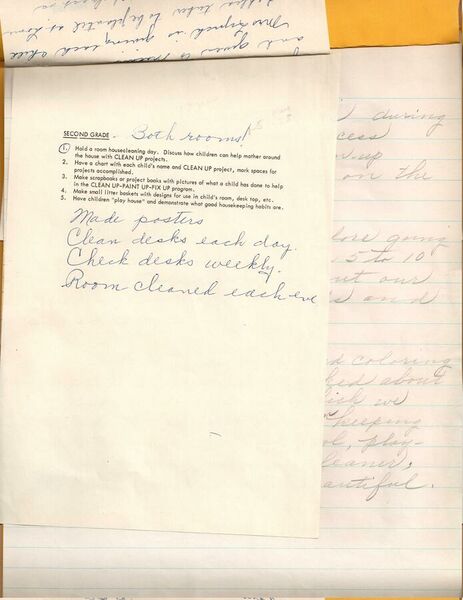 is giving each
to be planted at
SECOND GRADE - Both rooms!
1. Hold a room housecleaning day. Discuss how children can help mother around
the house with CLEAN UP projects.
2. Have a chart with each child's name and CLEAN UP project, mark spaces for
projects accomplished.
3. Make scrapbooks or project books with pictures of what a child has done to help
in the CLEAN UP-PAINT UP-FIX UP program.
4. Make small litter baskets with designs for use in child's room, desk top, etc.
5. Have children "play house" and demonstrate what good housekeeping habits are.
Made posters
Clean desks each day.
Check desks weekly.
Room cleaned each eve
during
cess
-up
on the
going
5 to 10
out our
and
coloring
ked about
we
keeping
play-
leaner,
autiful.